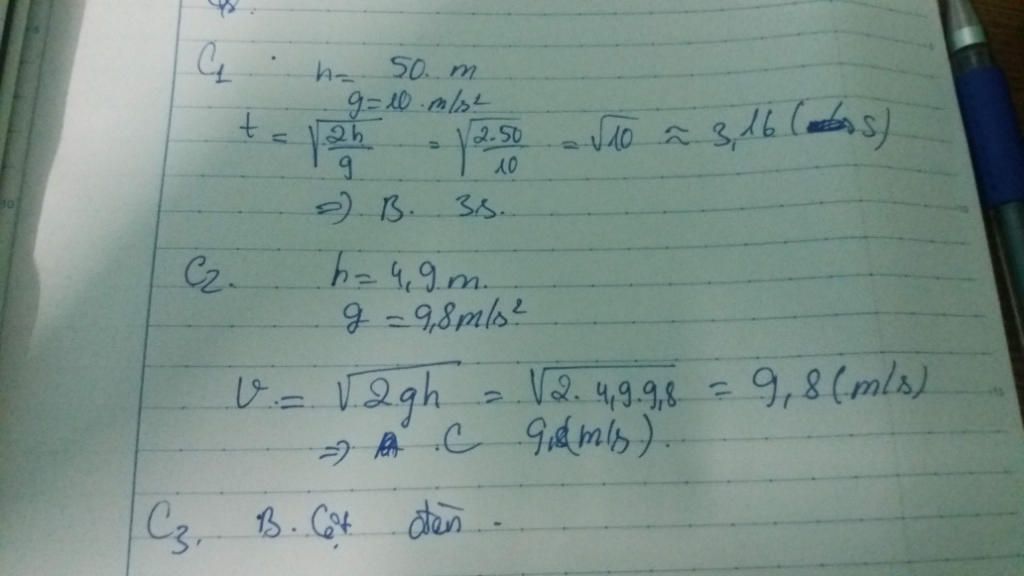 C1 h= 50. m
g=10 m/s²
t = √(2h/g) = √(2.50/10) = √10 ≈ 3,16 (s)
=> B. 3s.
C2. h= 4,9 m.
g = 9,8m/s²
v = √2gh = √2.4,9.9,8 = 9,8(m/s)
=> C 9,8(m/s).
C3. B. Cột đèn.